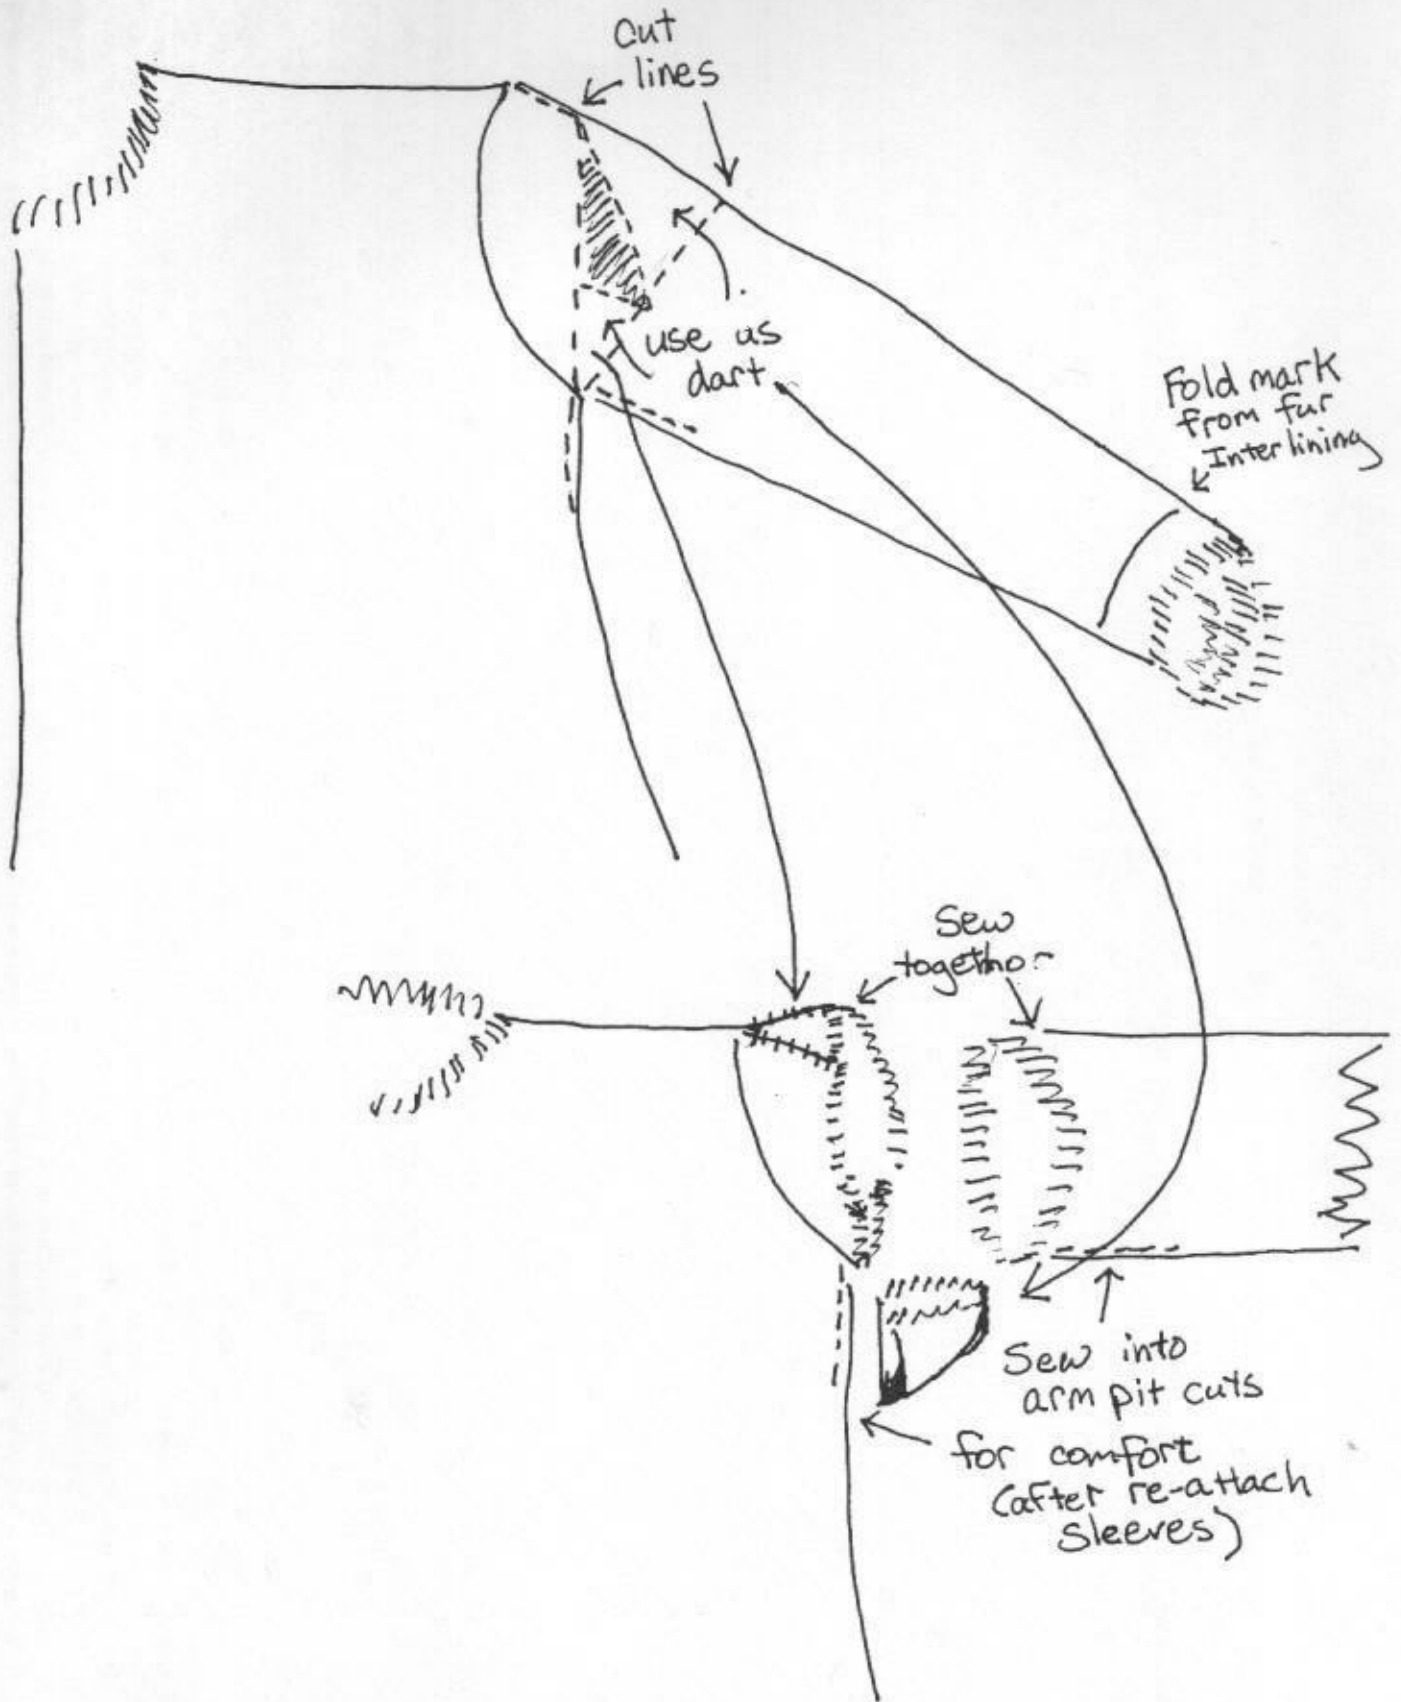 cut
lines
use as
dart
Fold mark
from fur
Interlining
Sew
together
Sew into
arm pit cuts
for comfort
(after re-attach
sleeves)